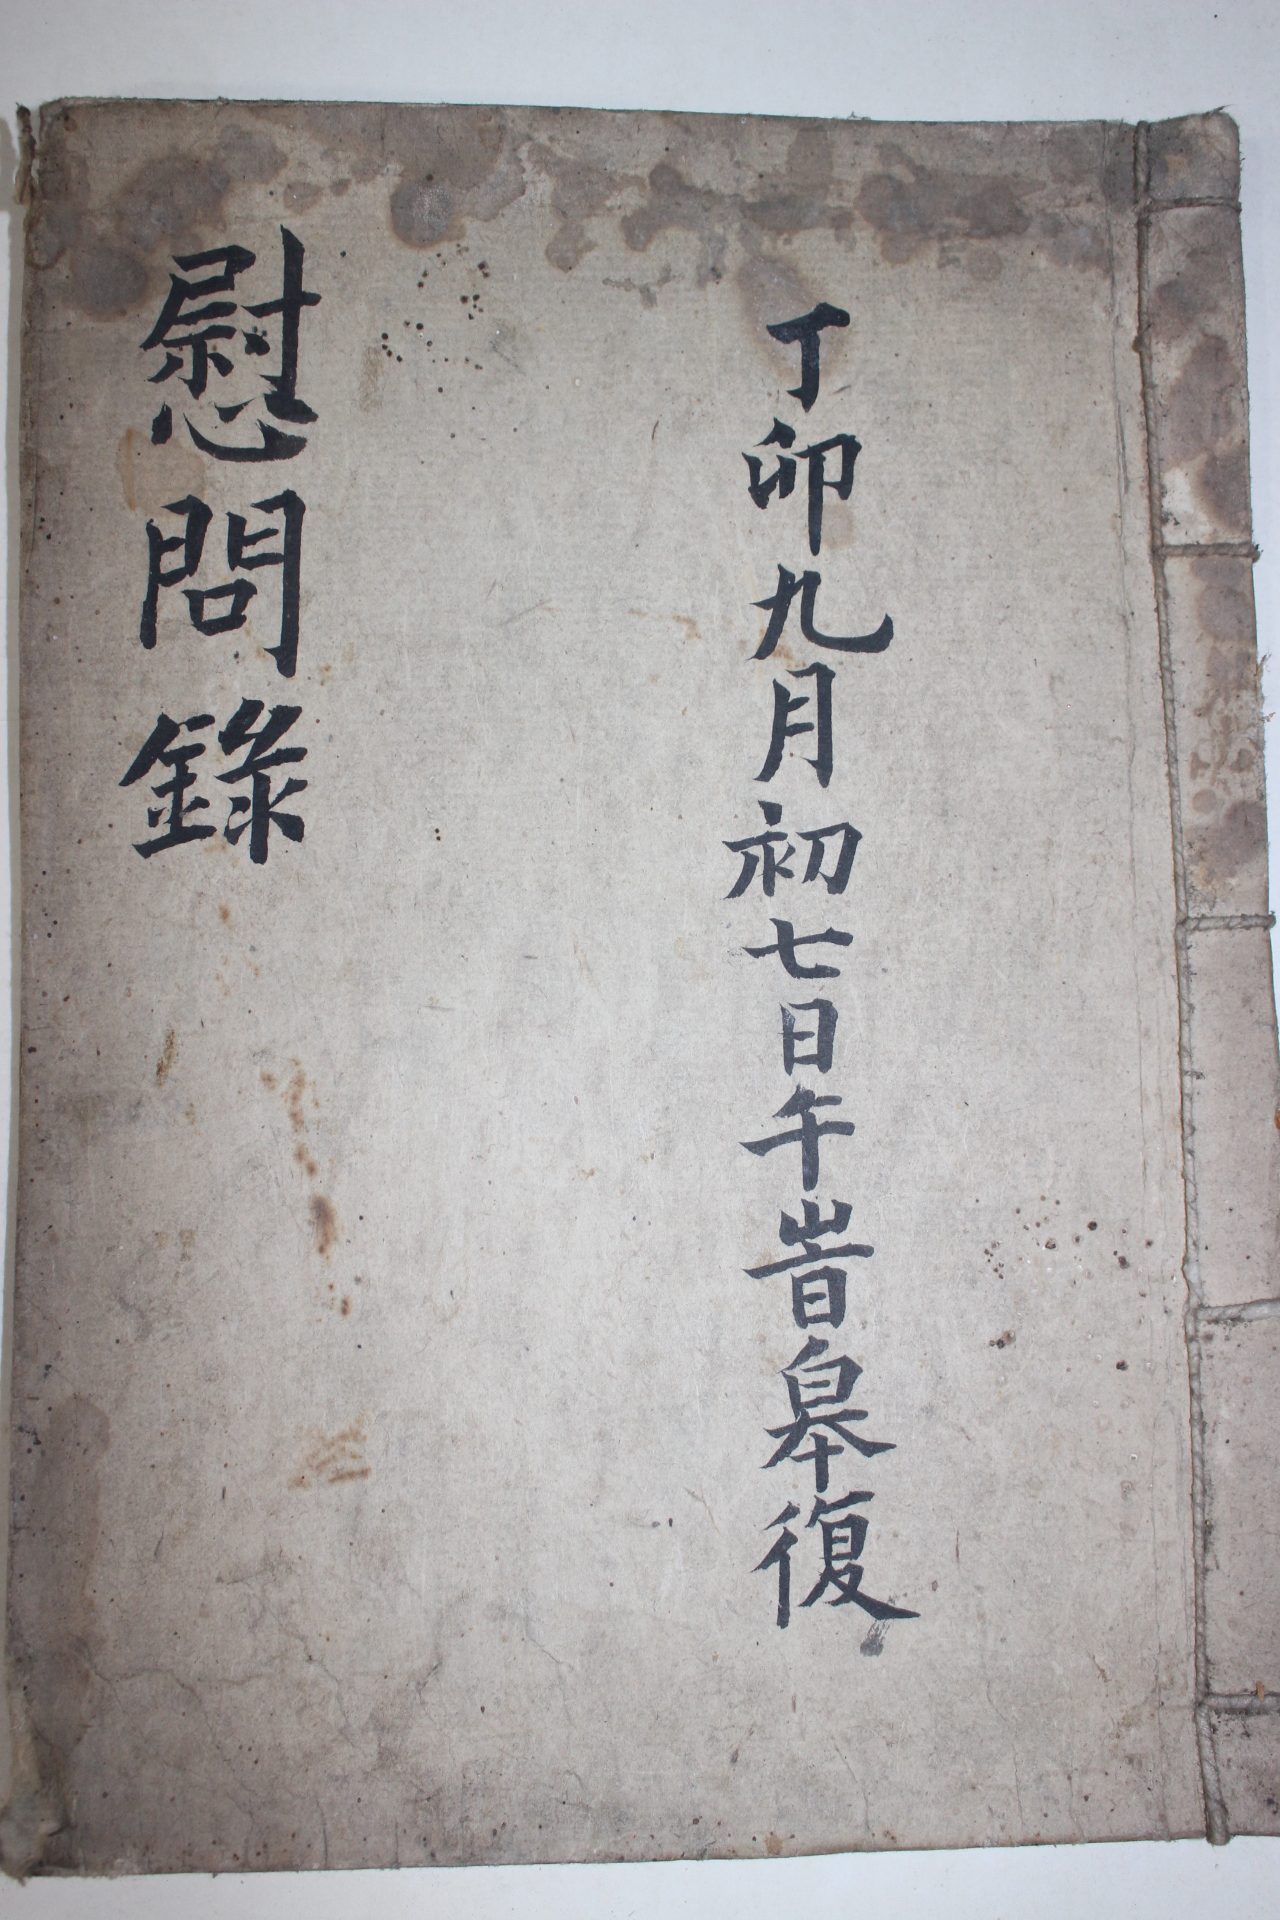 丁卯九月初七日午旹皋復
慰問錄